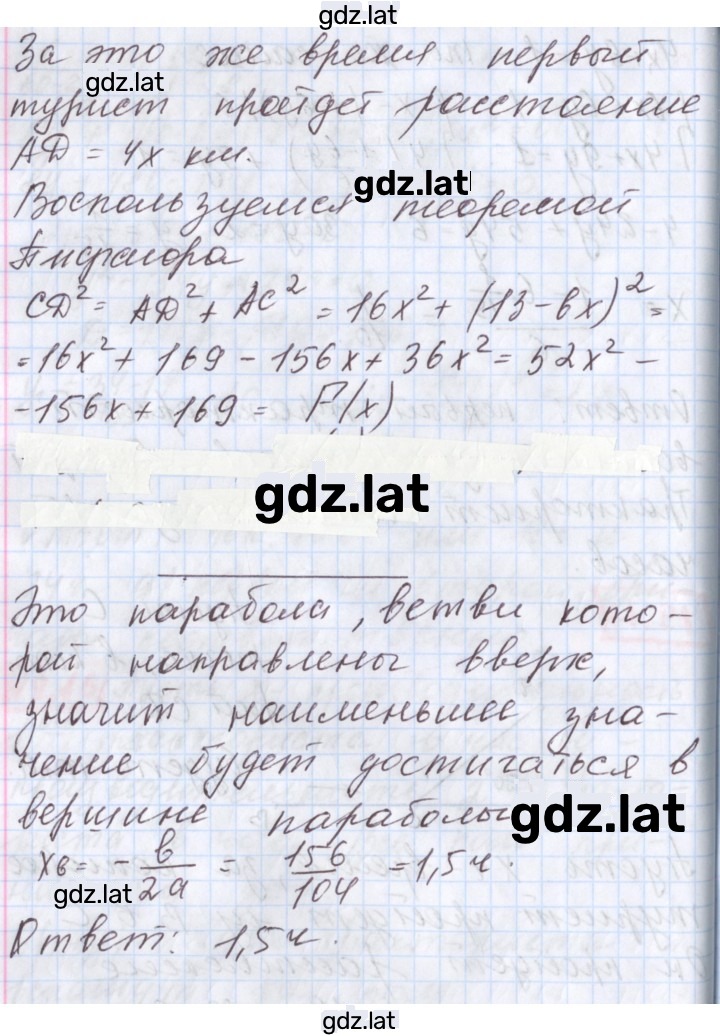 gdz.lat
За это же время первый
gdz.lat
турист пройдет расстояние
AD = 4x км.
gdz.lat
Воспользуемся теоремой
Пифагора
CD² = AD² + AC² = 16x² + (13-6x)² =
= 16x² + 169 - 156x + 36x² = 52x² -
- 156x + 169 = F(x)
gdz.lat
Это парабола, ветви кото-
рой направлены вверх,
значит наименьшее зна-
чение будет достигаться в
вершине параболы
gdz.lat
xв = - в/2a = 156/104 = 1,5 ч.
gdz.lat
Ответ: 1,5 ч.
gdz.lat